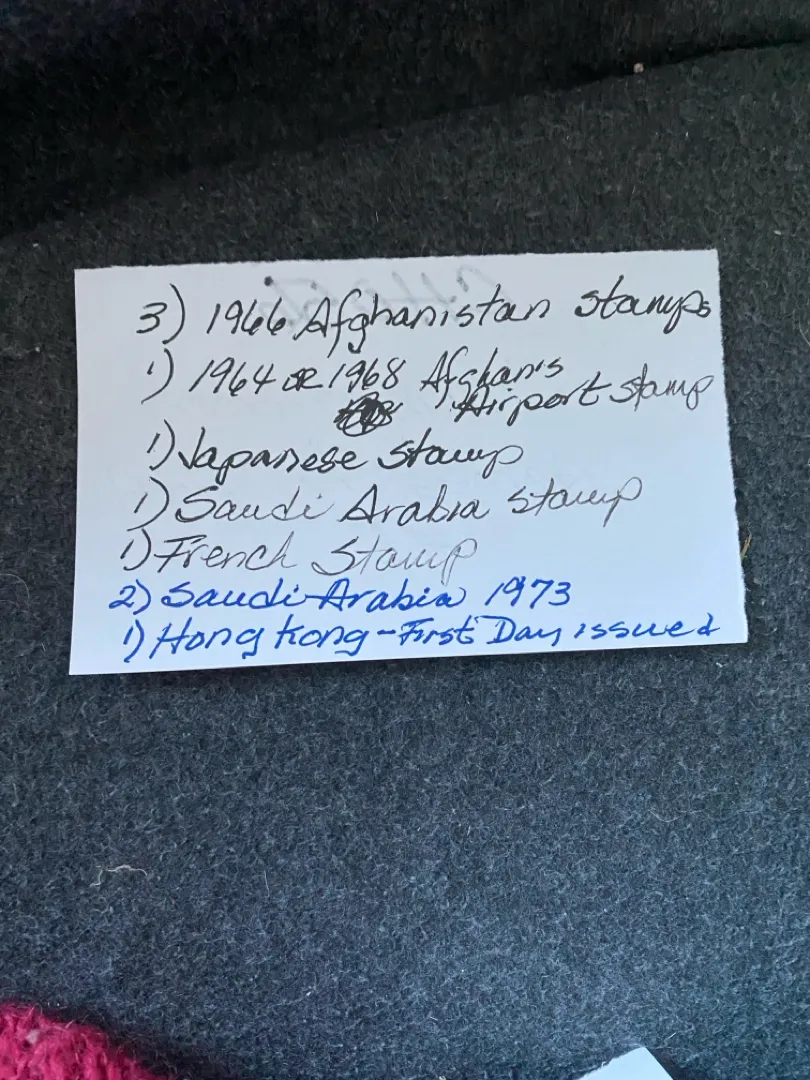 3) 1966 Afghanistan stamps
1) 1964 OR 1968 Afghanis
Airport stamp
1) Japanese stamp
1) Saudi Arabia stamp
1) French Stamp
2) Saudi Arabia 1973
1) Hong Kong - First Day issued